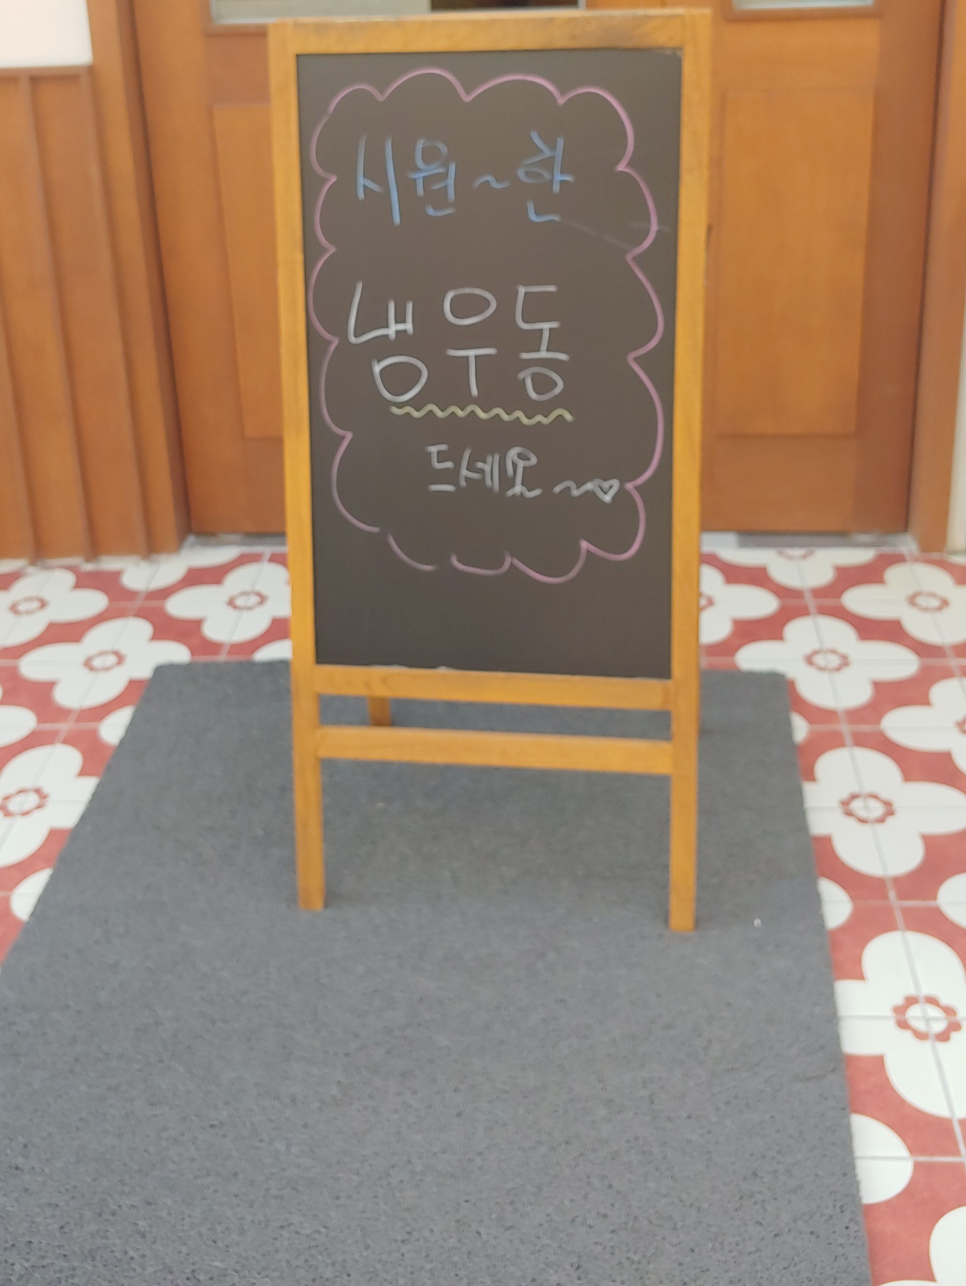 시원~한
냉우동
드세요~♡